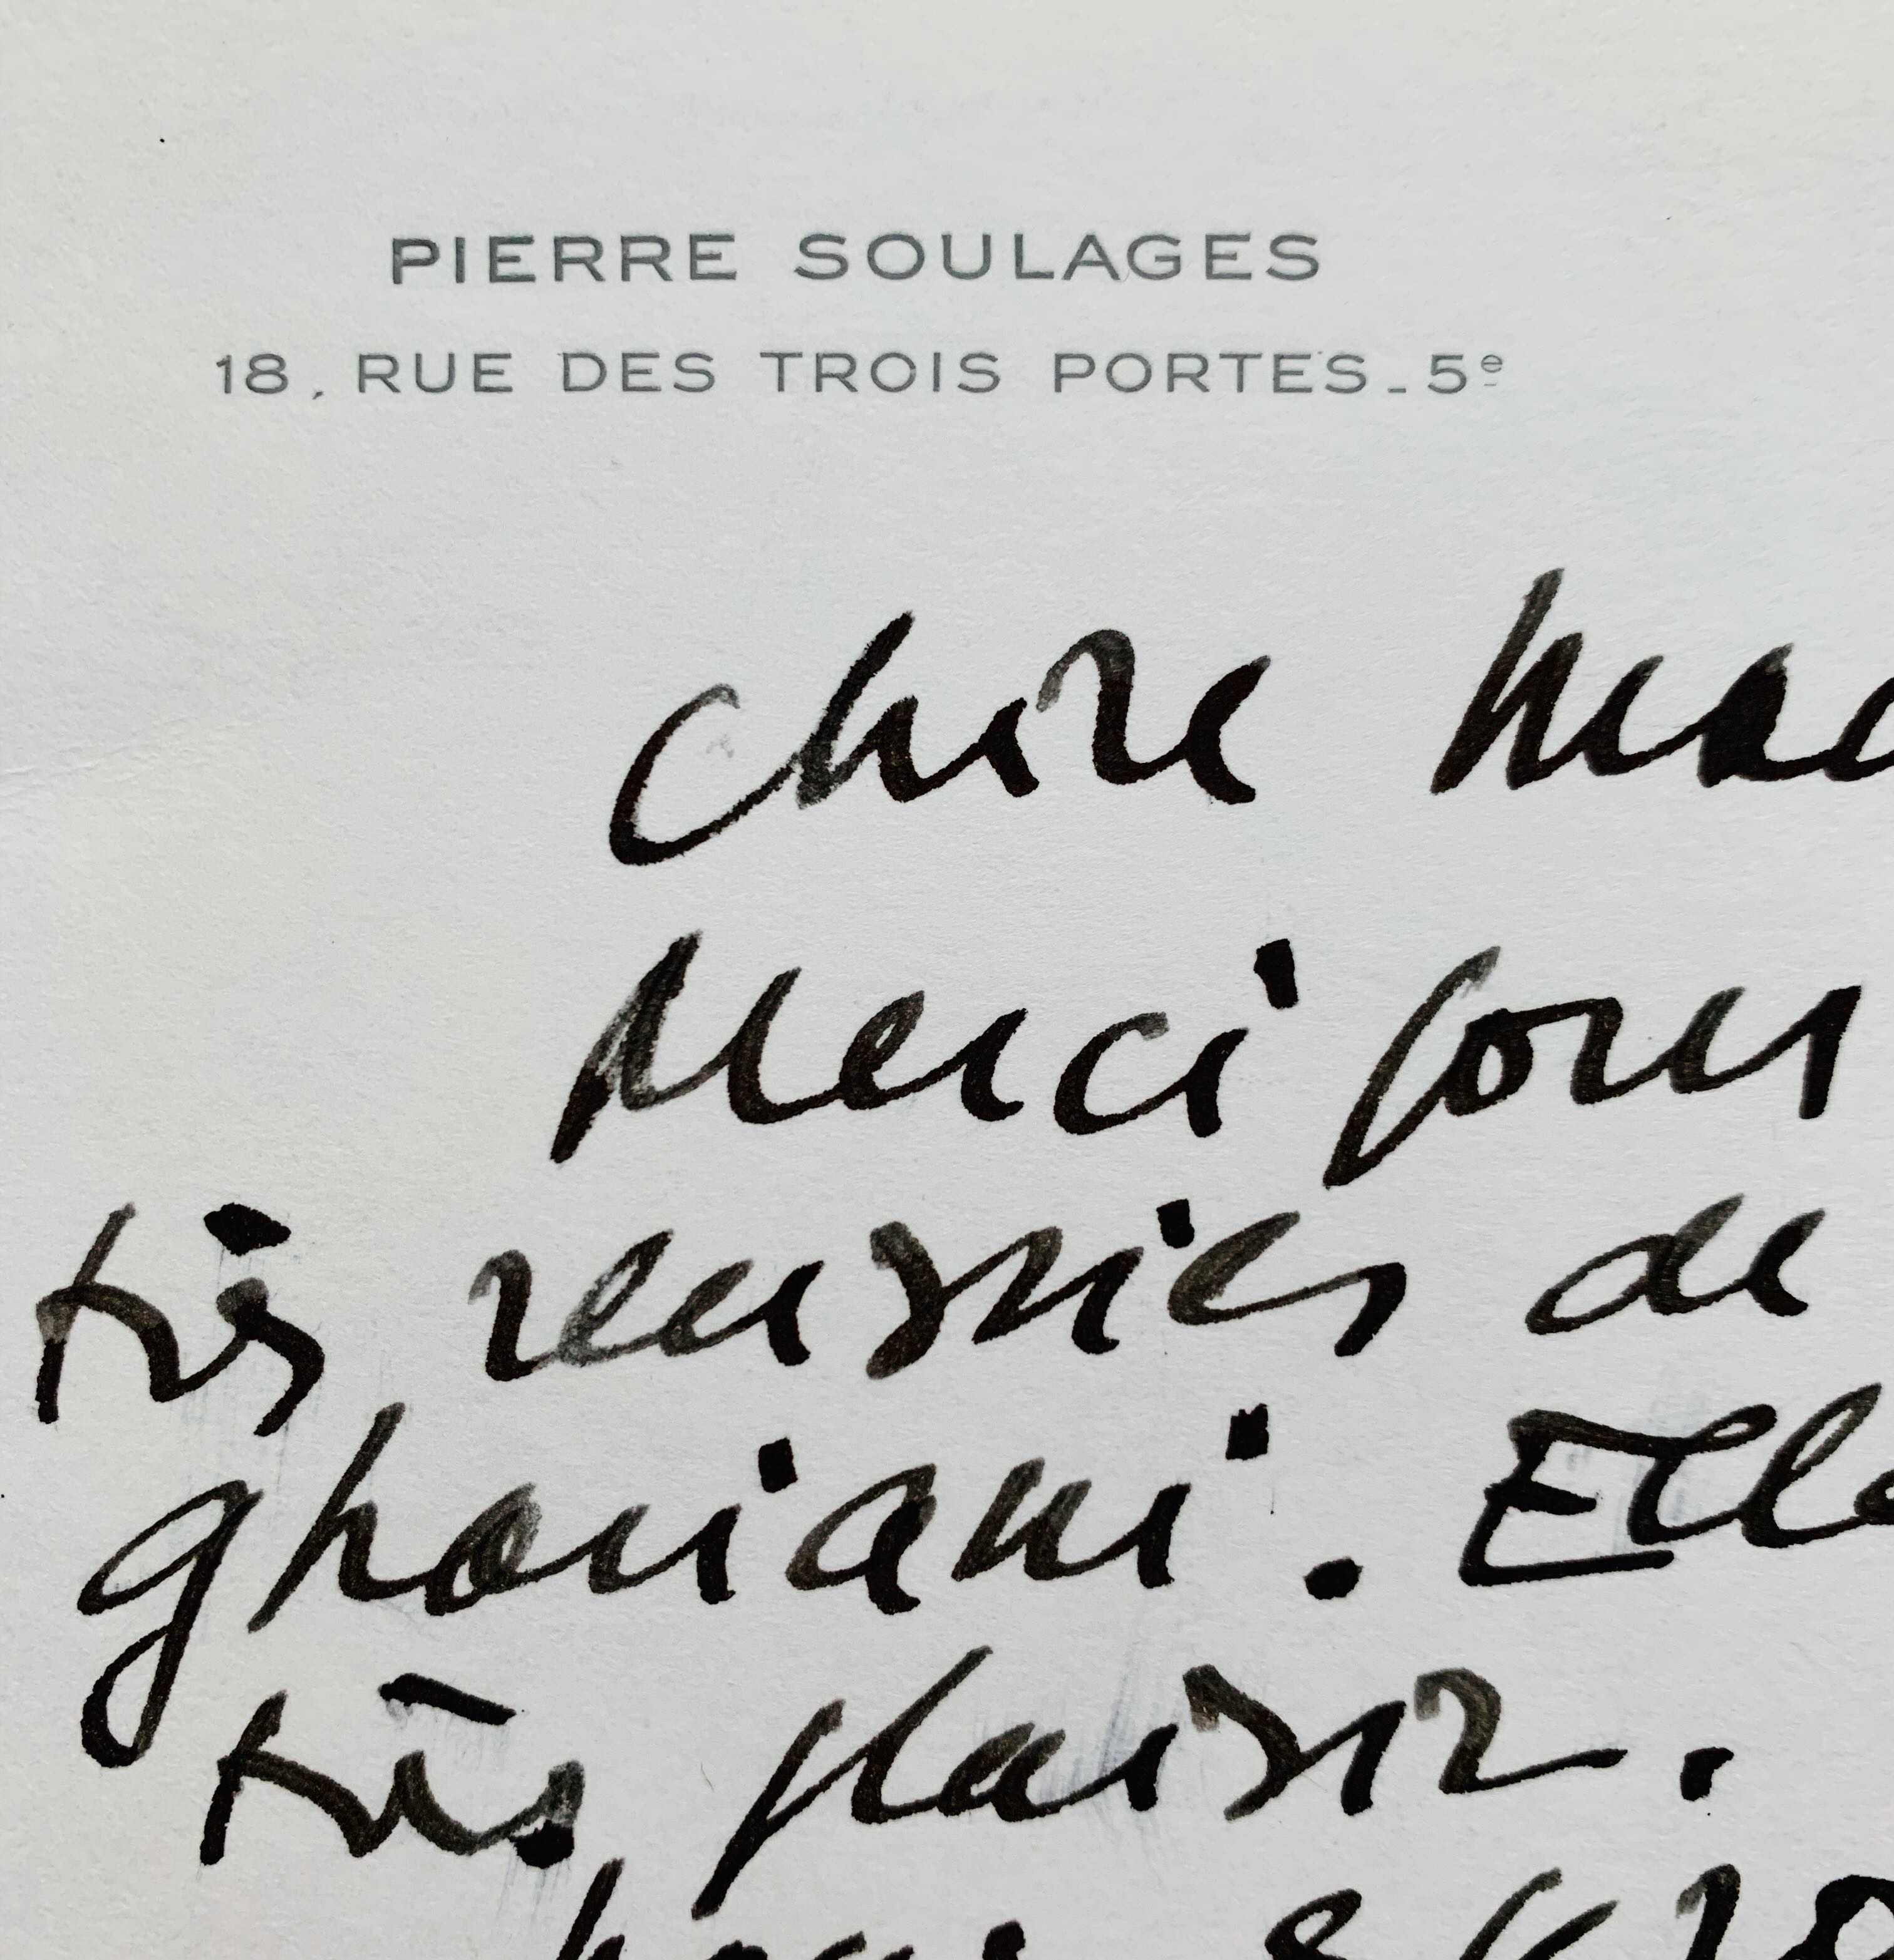 PIERRE SOULAGES
18, RUE DES TROIS PORTES_5e
Chère Mad
Merci pour
très réussies de
ghouiani. Elle
très plaisir.